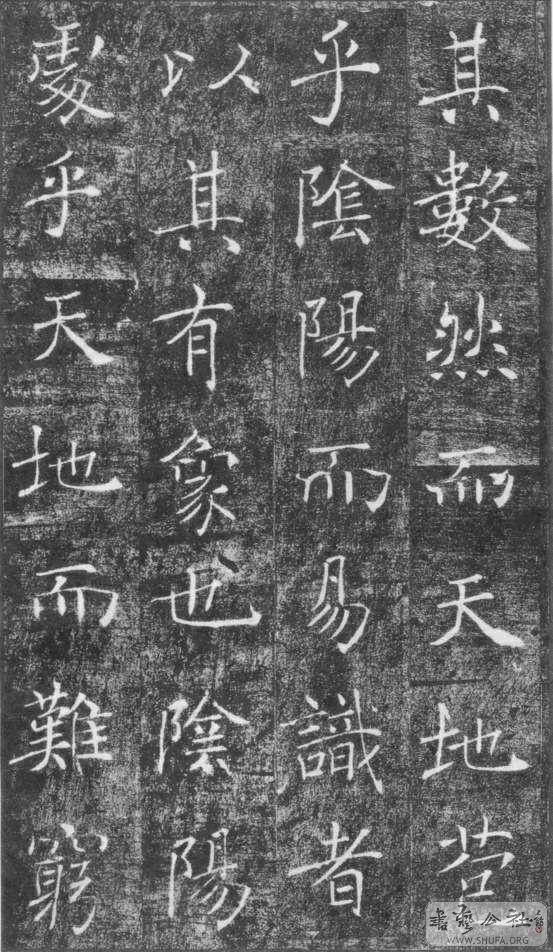 其數然而天地苞
乎陰陽而易識者
以其有象也陰陽
處乎天地而難窮
書藝公社
WWW.SHUFA.ORG